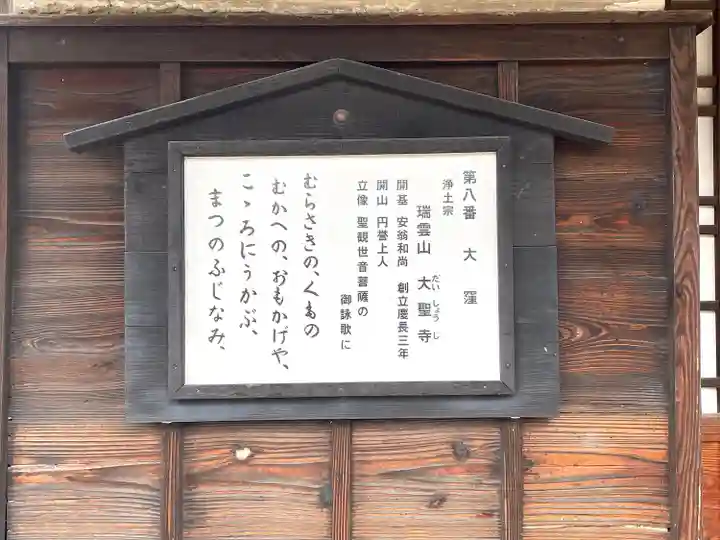 第八番 大窪
浄土宗
瑞雲山 大聖寺
だいしょうじ
開基 安翁和尚 創立慶長三年
開山 円誉上人
立像 聖観世音菩薩の
御詠歌に
むらさきの、くもの
むかへの、おもかげや、
こゝろにうかぶ、
まつのふじなみ、